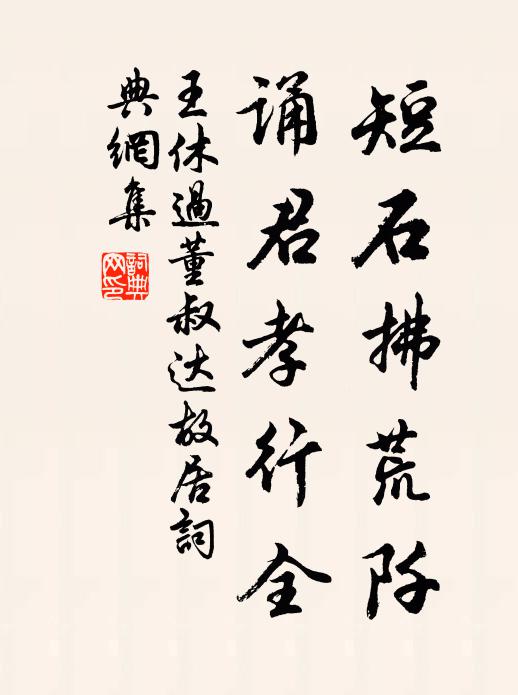 短石拂荒阡
诵君孝行全
王休過董叔达故居詞
典網集
詞典網印